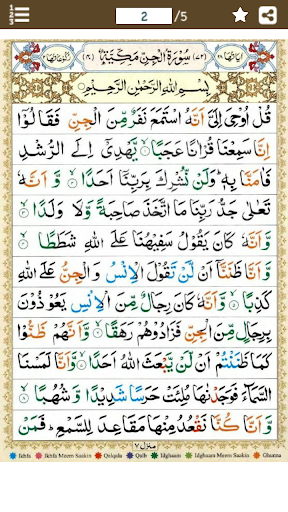 123
2 /5
اٰیَاتُهَا ۲۸ (۷۲) سُوْرَةُ الْجِنِّ مَكِّیَّةٌ (۴۰) رُكُوْعَاتُهَا ۲
بِسْمِ اللّٰهِ الرَّحْمٰنِ الرَّحِیْمِ
قُلْ اُوْحِیَ اِلَیَّ اَنَّهُ اسْتَمَعَ نَفَرٌ مِّنَ الْجِنِّ فَقَالُوْۤا
اِنَّا سَمِعْنَا قُرْاٰنًا عَجَبًا ۙ۱ یَّهْدِیْۤ اِلَی الرُّشْدِ
فَاٰمَنَّا بِهٖ ؕ وَ لَنْ نُّشْرِكَ بِرَبِّنَاۤ اَحَدًا ۙ۲ وَّ اَنَّهٗ
تَعٰلٰی جَدُّ رَبِّنَا مَا اتَّخَذَ صَاحِبَةً وَّ لَا وَلَدًا ۙ۳
وَّ اَنَّهٗ كَانَ یَقُوْلُ سَفِیْهُنَا عَلَی اللّٰهِ شَطَطًا ۙ۴
وَّ اَنَّا ظَنَنَّاۤ اَنْ لَّنْ تَقُوْلَ الْاِنْسُ وَ الْجِنُّ عَلَی اللّٰهِ
كَذِبًا ۙ۵ وَّ اَنَّهٗ كَانَ رِجَالٌ مِّنَ الْاِنْسِ یَعُوْذُوْنَ
بِرِجَالٍ مِّنَ الْجِنِّ فَزَادُوْهُمْ رَهَقًا ۙ۶ وَّ اَنَّهُمْ ظَنُّوْا
كَمَا ظَنَنْتُمْ اَنْ لَّنْ یَّبْعَثَ اللّٰهُ اَحَدًا ۙ۷ وَّ اَنَّا لَمَسْنَا
السَّمَآءَ فَوَجَدْنٰهَا مُلِئَتْ حَرَسًا شَدِیْدًا وَّ شُهُبًا ۙ۸
وَّ اَنَّا كُنَّا نَقْعُدُ مِنْهَا مَقَاعِدَ لِلسَّمْعِ ؕ فَمَنْ
منزل ۷
Ikhfa Ikhfa Meem Saakin Qalqala Qalb Idghaam Idghaam Meem Saakin Ghunna